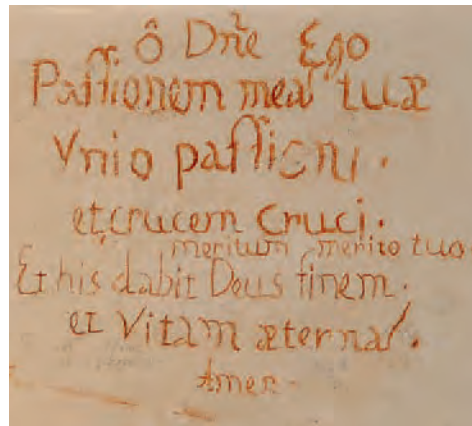 Ô Dñe Ego
Paſſionem meã tuæ
Vnio paſſioni.
et crucem Cruci.
meritum merito tuo
Et his dabit Deus finem.
et Vitam æternã.
Amen